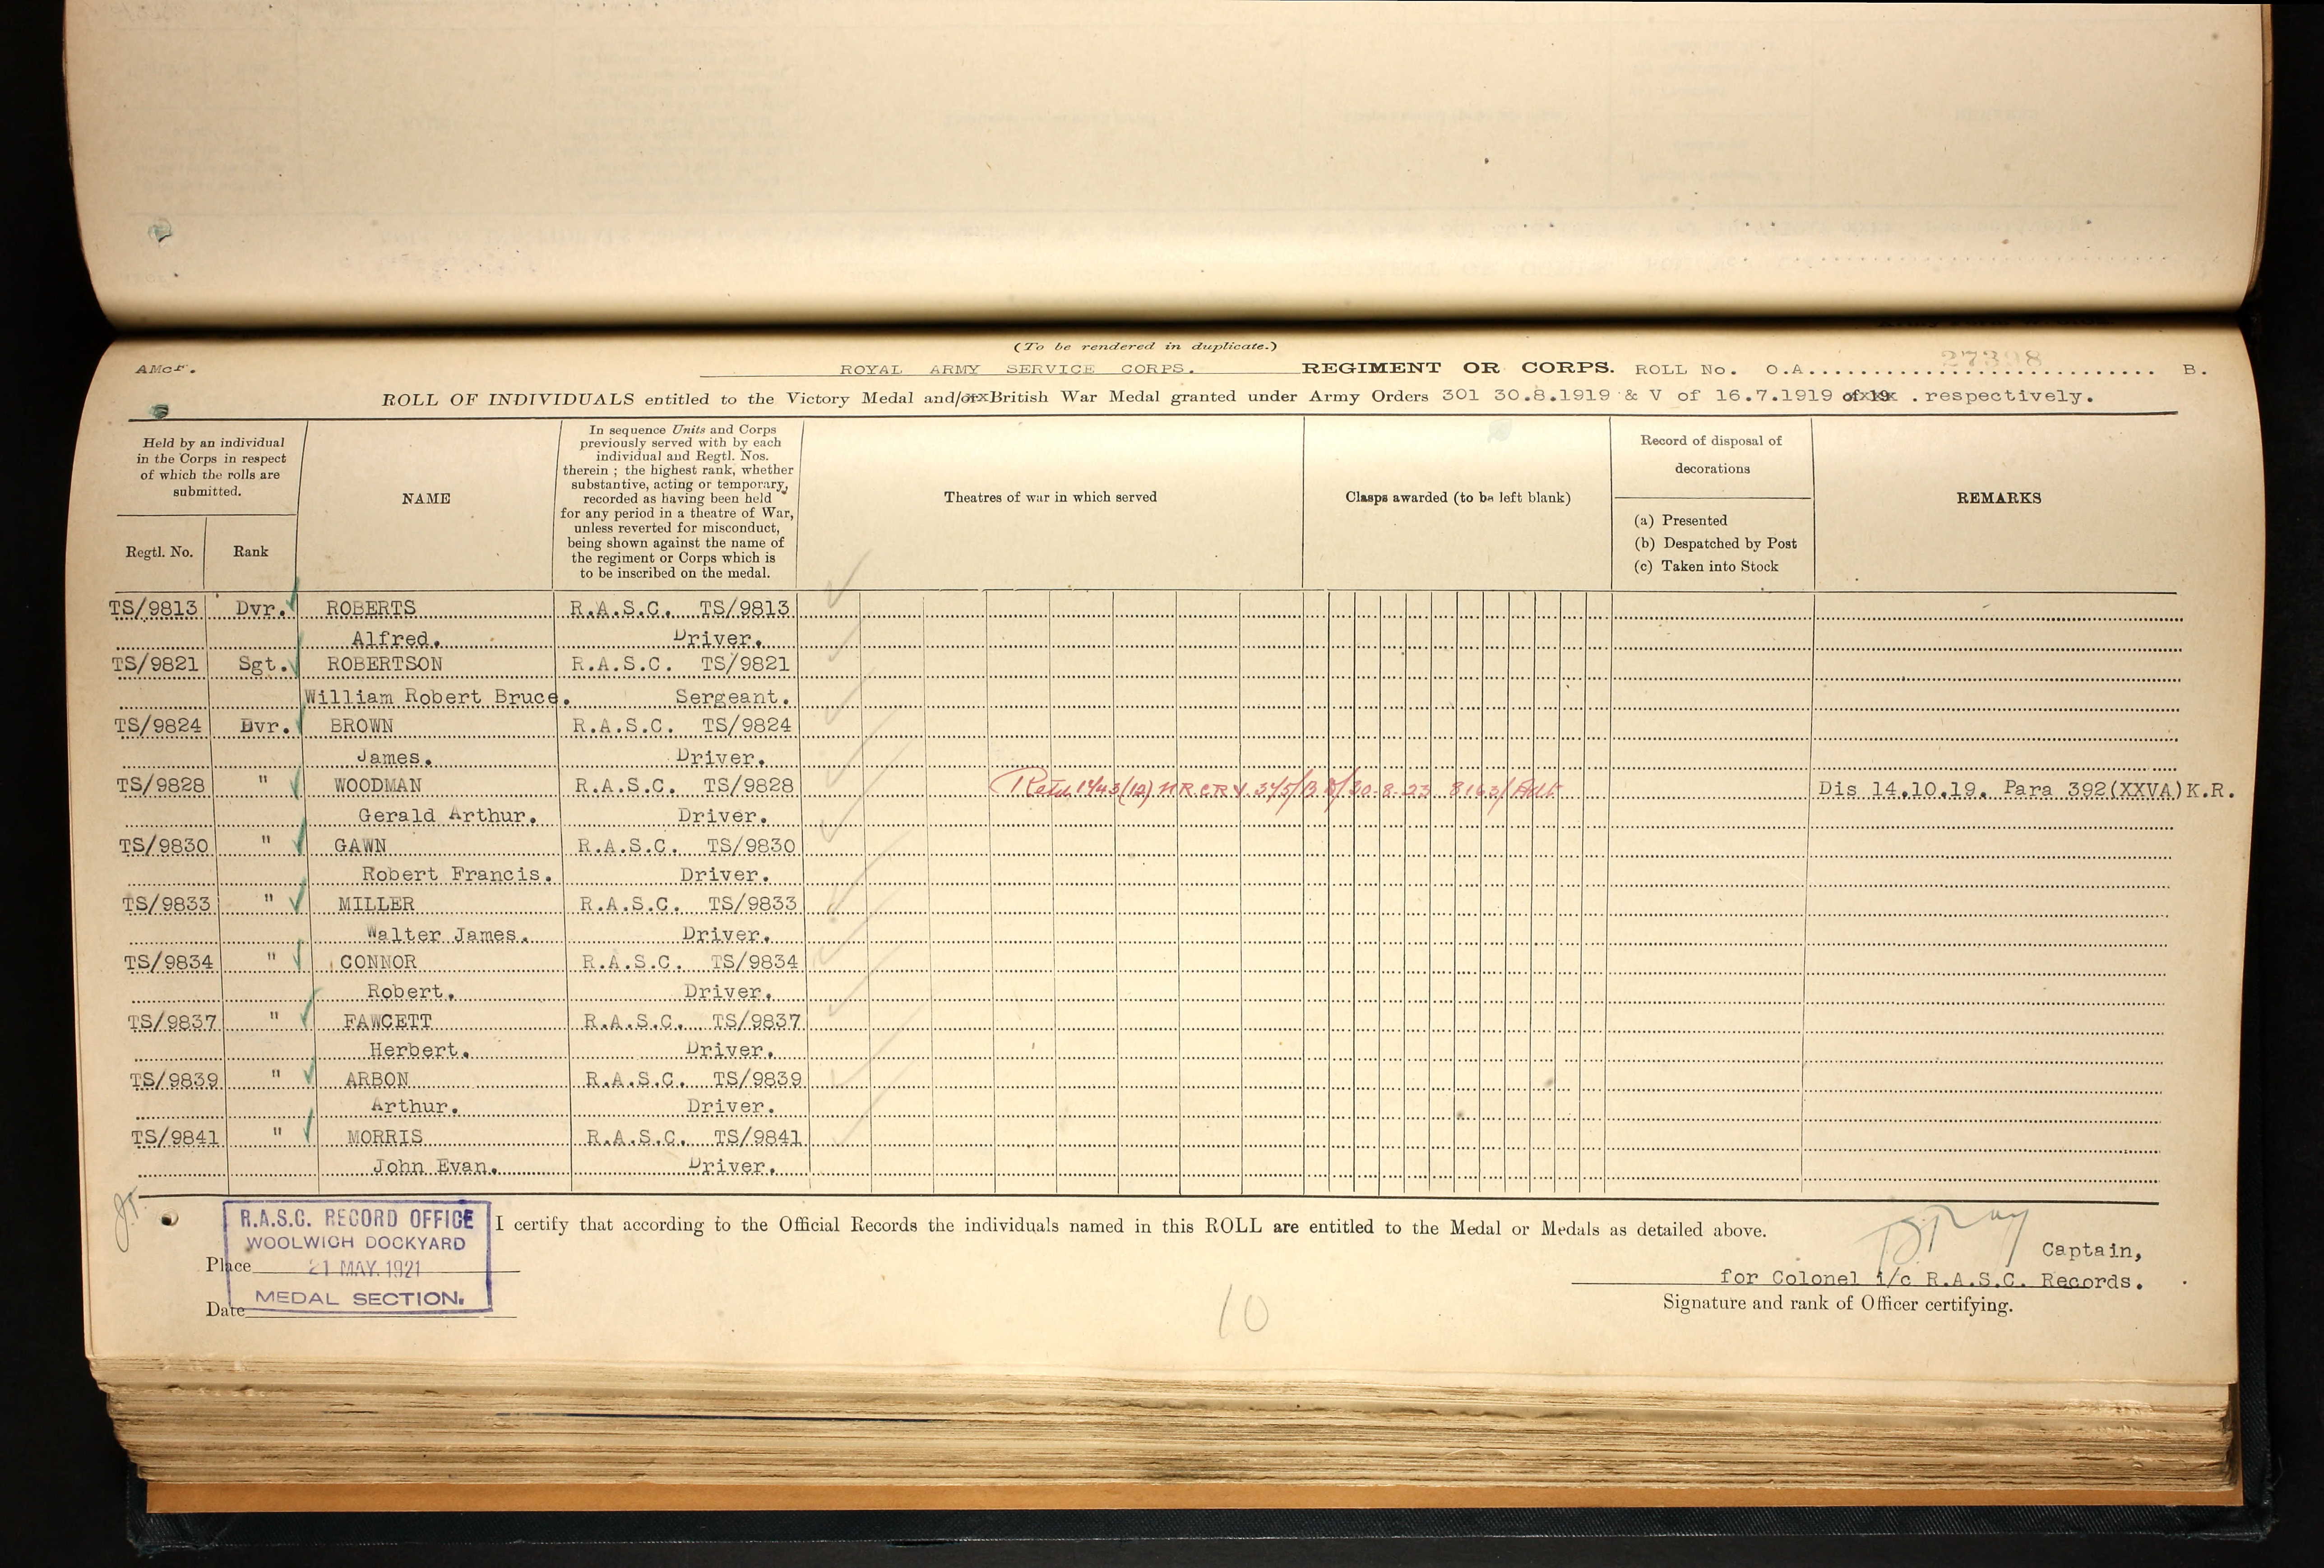 (To be rendered in duplicate.)
AMcF. ROYAL ARMY SERVICE CORPS. REGIMENT OR CORPS. ROLL No. O.A. 27398 B.
ROLL OF INDIVIDUALS entitled to the Victory Medal and/or British War Medal granted under Army Orders 301 30.8.1919 & V of 16.7.1919 of 19 . respectively.
Held by an individual
in the Corps in respect
of which the rolls are
submitted.
Regtl. No. Rank
NAME
In sequence Units and Corps
previously served with by each
individual and Regtl. Nos.
therein ; the highest rank, whether
substantive, acting or temporary,
recorded as having been held
for any period in a theatre of War,
unless reverted for misconduct,
being shown against the name of
the regiment or Corps which is
to be inscribed on the medal.
Theatres of war in which served
Clasps awarded (to be left blank)
Record of disposal of
decorations
(a) Presented
(b) Despatched by Post
(c) Taken into Stock
REMARKS
TS/9813 Dvr. ROBERTS R.A.S.C. TS/9813
Alfred. Driver.
TS/9821 Sgt. ROBERTSON R.A.S.C. TS/9821
William Robert Bruce. Sergeant.
TS/9824 Dvr. BROWN R.A.S.C. TS/9824
James. Driver.
TS/9828 " WOODMAN R.A.S.C. TS/9828 Retd 1743(12) 30.8.23 8163/Adt Dis 14.10.19. Para 392(XXVA)K.R.
Gerald Arthur. Driver.
TS/9830 " GAWN R.A.S.C. TS/9830
Robert Francis. Driver.
TS/9833 " MILLER R.A.S.C. TS/9833
Walter James. Driver.
TS/9834 " CONNOR R.A.S.C. TS/9834
Robert. Driver.
TS/9837 " FAWCETT R.A.S.C. TS/9837
Herbert. Driver.
TS/9839 " ARBON R.A.S.C. TS/9839
Arthur. Driver.
TS/9841 " MORRIS R.A.S.C. TS/9841
John Evan. Driver.
R.A.S.C. RECORD OFFICE
WOOLWICH DOCKYARD
21 MAY. 1921
MEDAL SECTION.
Place
Date
I certify that according to the Official Records the individuals named in this ROLL are entitled to the Medal or Medals as detailed above.
Captain,
for Colonel i/c R.A.S.C. Records.
Signature and rank of Officer certifying.
10